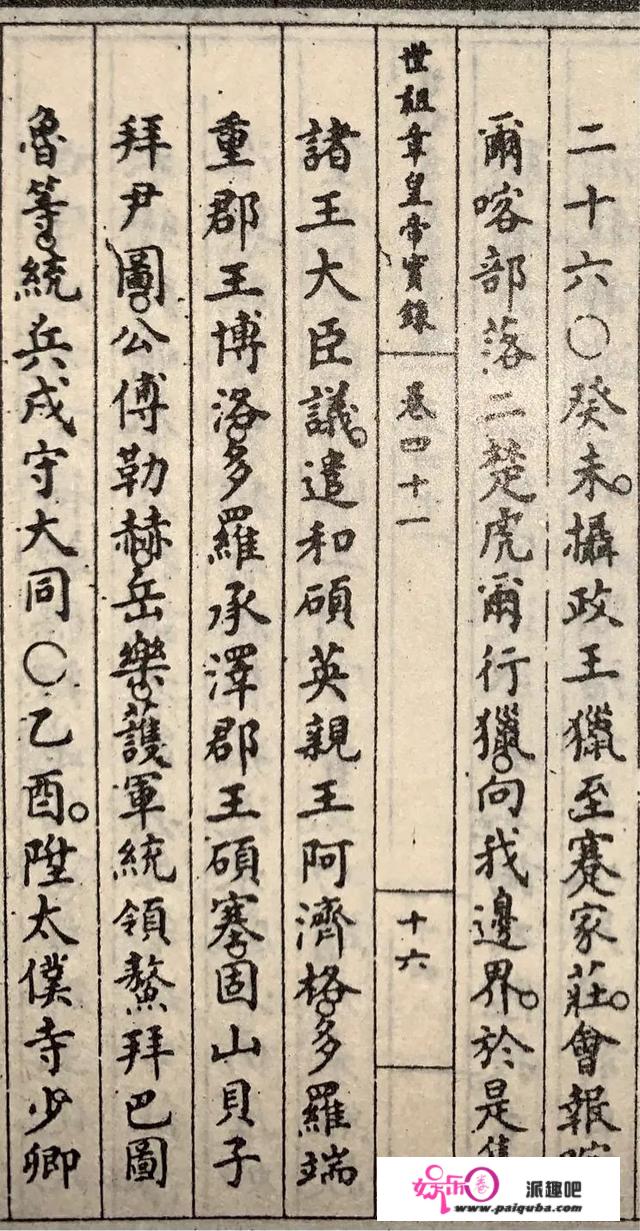 二十六〇癸未。攝政王獵至賽家莊。會報喀
爾喀部落二楚虎爾行獵。向我邊界。於是集
世祖章皇帝實錄 卷四十一 十六
諸王大臣議。遣和碩英親王阿濟格。多羅端
重郡王博洛。多羅承澤郡王碩塞。固山貝子
拜尹圖。公傅勒赫。岳樂。護軍統領鰲拜巴圖
魯等。統兵戍守大同〇乙酉。陞太僕寺少卿
娱乐卷 派趣吧
www.paiquba.com